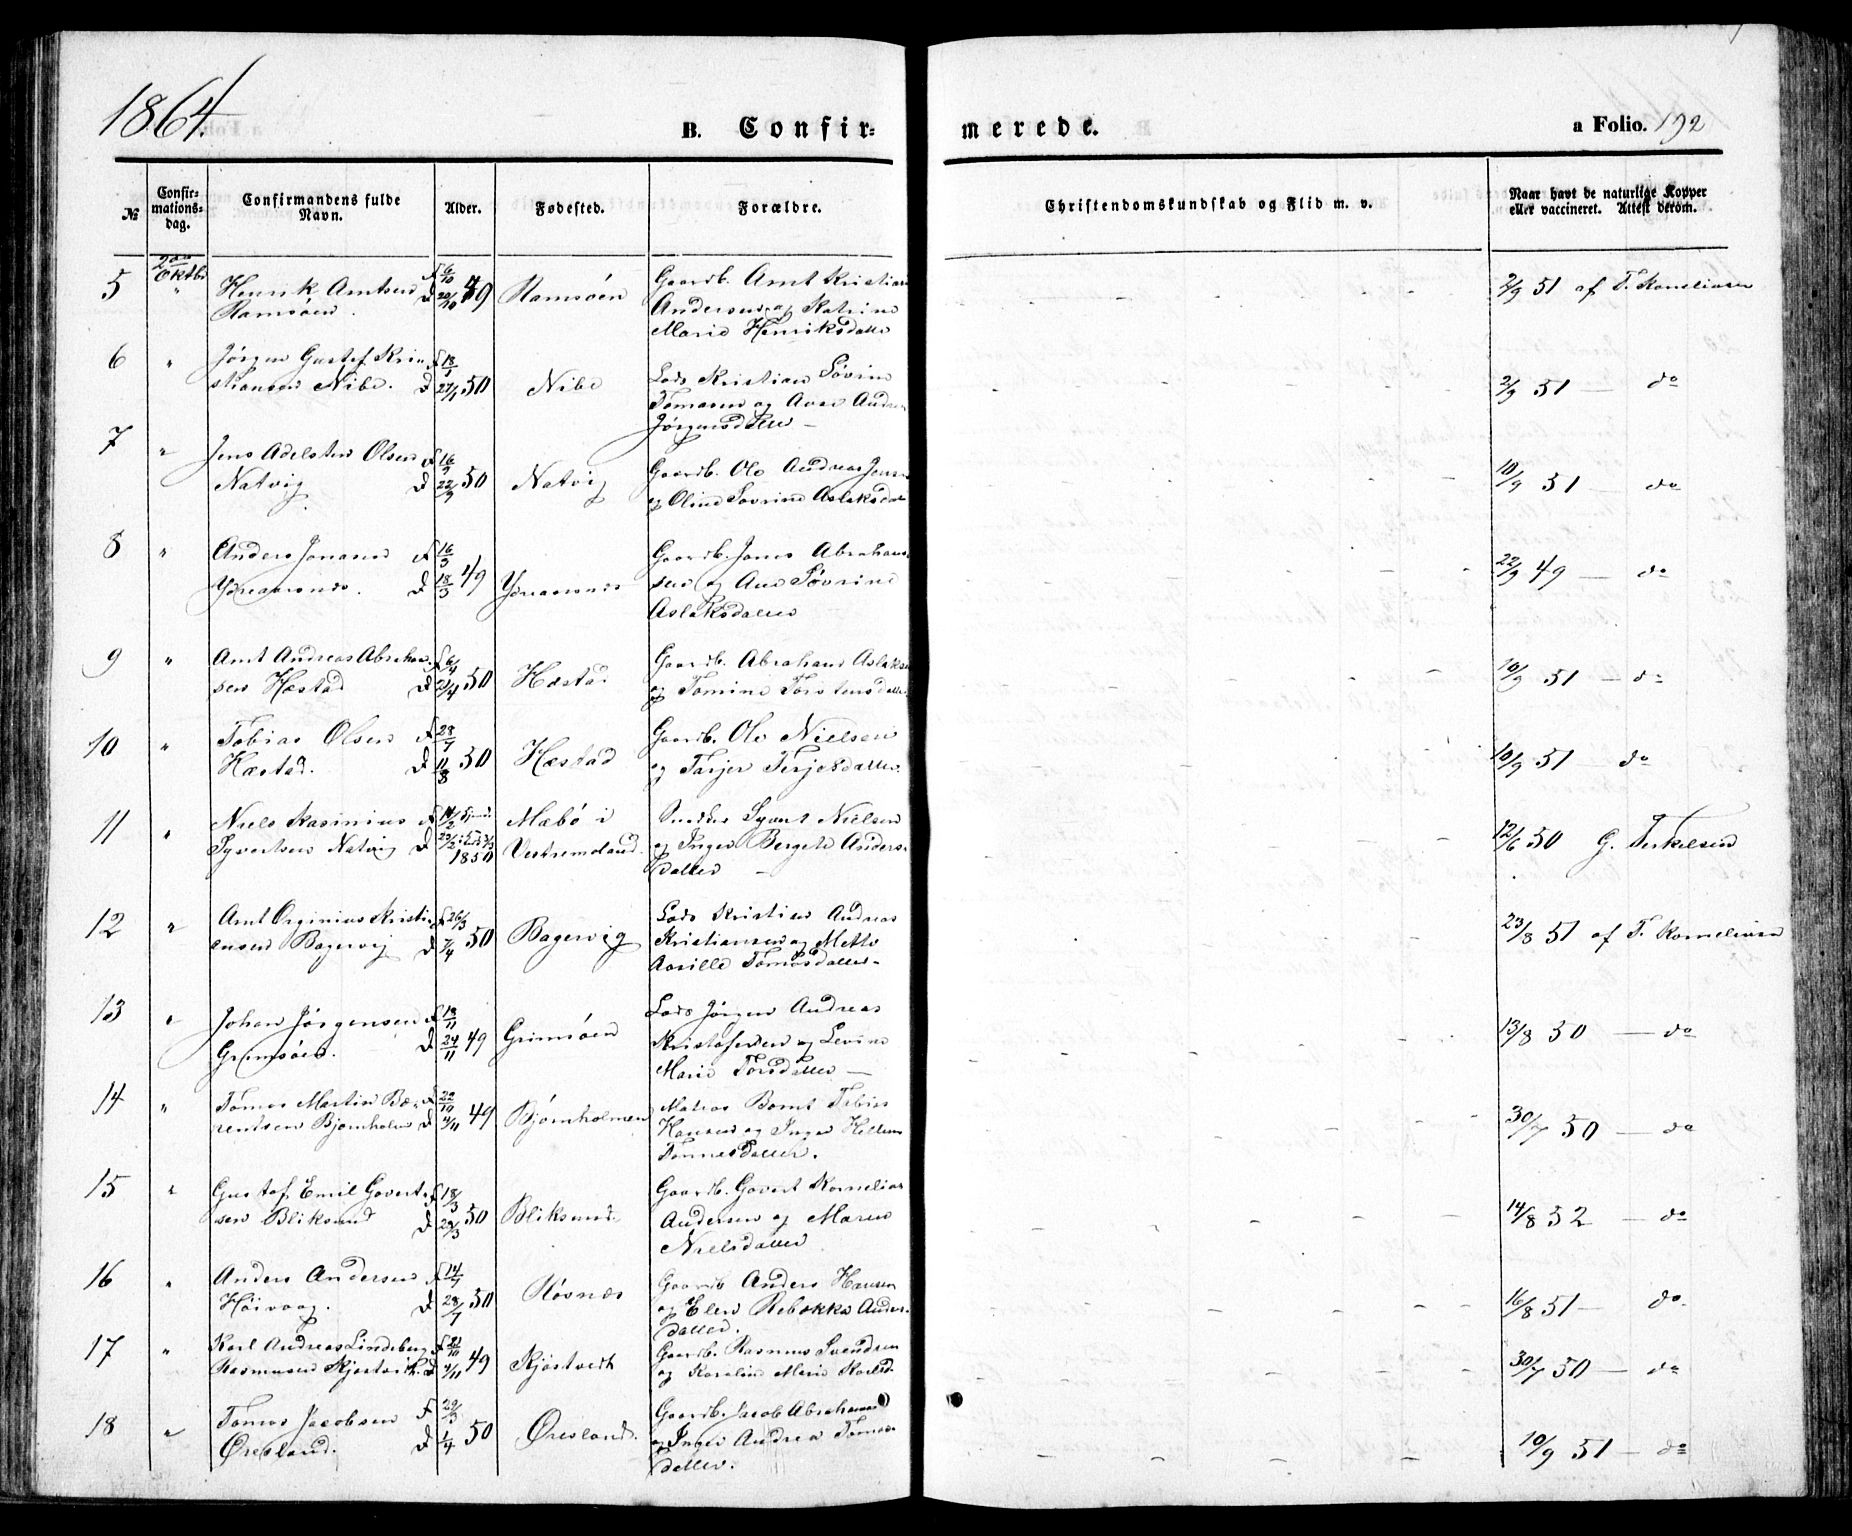 1864.
B. Confir-
merede.
a Folio. 192
№
Confir-
mations-
dag.
Confirmandens fulde
Navn.
Alder.
Fødested.
Forældre.
Christendomskundskab og Flid m. v.
Naar havt de naturlige Kopper
eller vaccineret. Attest derom.
5 Henrik Amtsen f 6/10 49 Ramsöen Gaardb. Amt Kristian 2/9 51 af T. Korneliusen
Ramsöen. D 20/10 Andersen og Katrine
Marie Henriksdatter
6 " Jörgen Gustef Kri- f 18/1 50 Nibe Lods Kristian Sövrin 2/9 51 — do
stiansen Nibe. D 27/1 Tomasen og
Jörgensdatter —
7 " Jens Adelsten Olsen f 16/9 50 Natvig Gaardb. Ole Andreas Jensen 10/9 51 — do
Natvig D 22/9 og Oline Sovrine Aslaksdatter
8 " Anders Jonasen f 16/3 49 Gaardb. Jonas Abraham- 22/9 49 — do
D 18/3 sen og Ane Sövrine
Aslaksdatter
9 " Amt Andreas Abraham- f 6/4 50 Hæstad Gaardb. Abraham Aslaksen 10/9 51 — do
sen Hæstad D og Tomine Torstensdatter
10 " Tobias Olsen f 28/7 50 Hæstad Gaardb. Ole Nielsen 10/9 51 do
Hæstad. D 11/8 og Tarjer Terjesdatter.
11 " Niels Rasinius f 14/2 Mæbö i Syvert Nielsen 12/6 50 G. Terkelsen
Syvertsen Natvig D 23/2 1850 Vestremoland. og Inger Bergete Anders-
datter —
12 " Amt Orginius Kristi- f 26/3 50 Bagervig Lods Kristian Andreas 23/8 51 af T. Korneliusen
ansen Bagervig D 7/4 Kristiansen og Mette
Aasille Tomasdatter-
13 " Johan Jörgensen f 13/11 49 Grimsöen Lods Jörgen Andreas 13/8 50 — do
Grimsöen. D 24/11 Kristofersen og Levine
Marie Torsdatter —
14 " Tomas Martin Bæ- f 22/10 49 Bjornholmen Matros Bernt Tobias 30/7 50 — do
rentsen Bjornholm D 4/11 Hansen og Inger Hellene
Tönnesdatter.
15 " Gustaf Emil Govert- f 18/3 50 Bliksund. Gaardb. Govert Kornelius 14/8 52 — do
sen Bliksund D 29/3 Andersen og Maren
Nielsdatter
16 " Anders Andersen f 14/7 50 Rövnæs Gaardb Anders Hansen 16/8 51 — do.
Höivaag. D 28/7 og Elen Rebekka Anders-
datter.
17 " Karl Andreas Lindeberg f 49 Kjöstvedt Gaardb. Rasmus Svendsen 30/7 50 — do
Rasmusen Kjöstvedt. D 4/11 og Karoline Marie Karlsd.
18 " Tomas Jacobsen f 29/3 50 Öresland. Gaardb. Jacob Abrahamsen 10/9 51 — do
Öresland. D 1/4 og Inger Andrea Tomas-
datter.